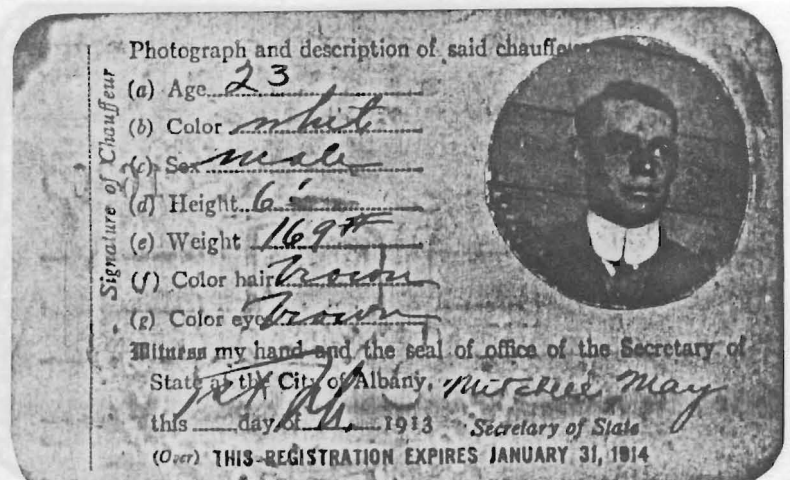 Signature of Chauffeur
Photograph and description of said chauffeu
(a) Age 23
(b) Color whit
(c) Sex male
(d) Height 6'
(e) Weight 169#
(f) Color hair brown
(g) Color eyes brown
Witness my hand and the seal of office of the Secretary of
State at the City of Albany, Mitchell May
this day of 1913 Secretary of State
(Over) THIS REGISTRATION EXPIRES JANUARY 31, 1914